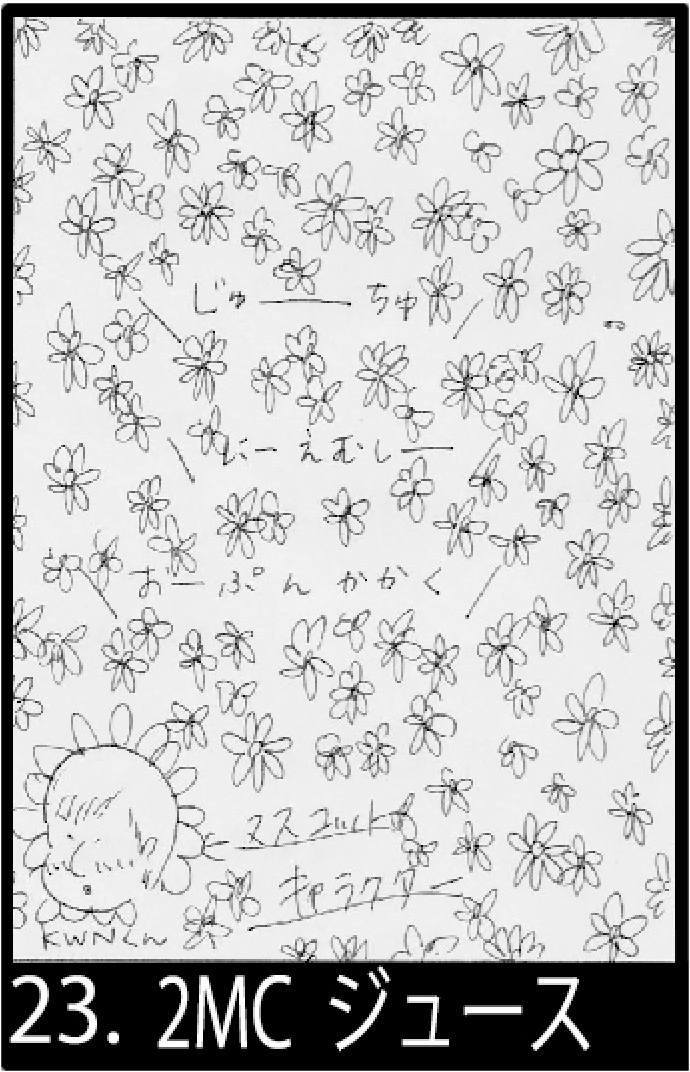 じゅーちゅ
にーえむしー
おーぷんかかく
マスコット
キャラクター
KWNくん
23. 2MC ジュース